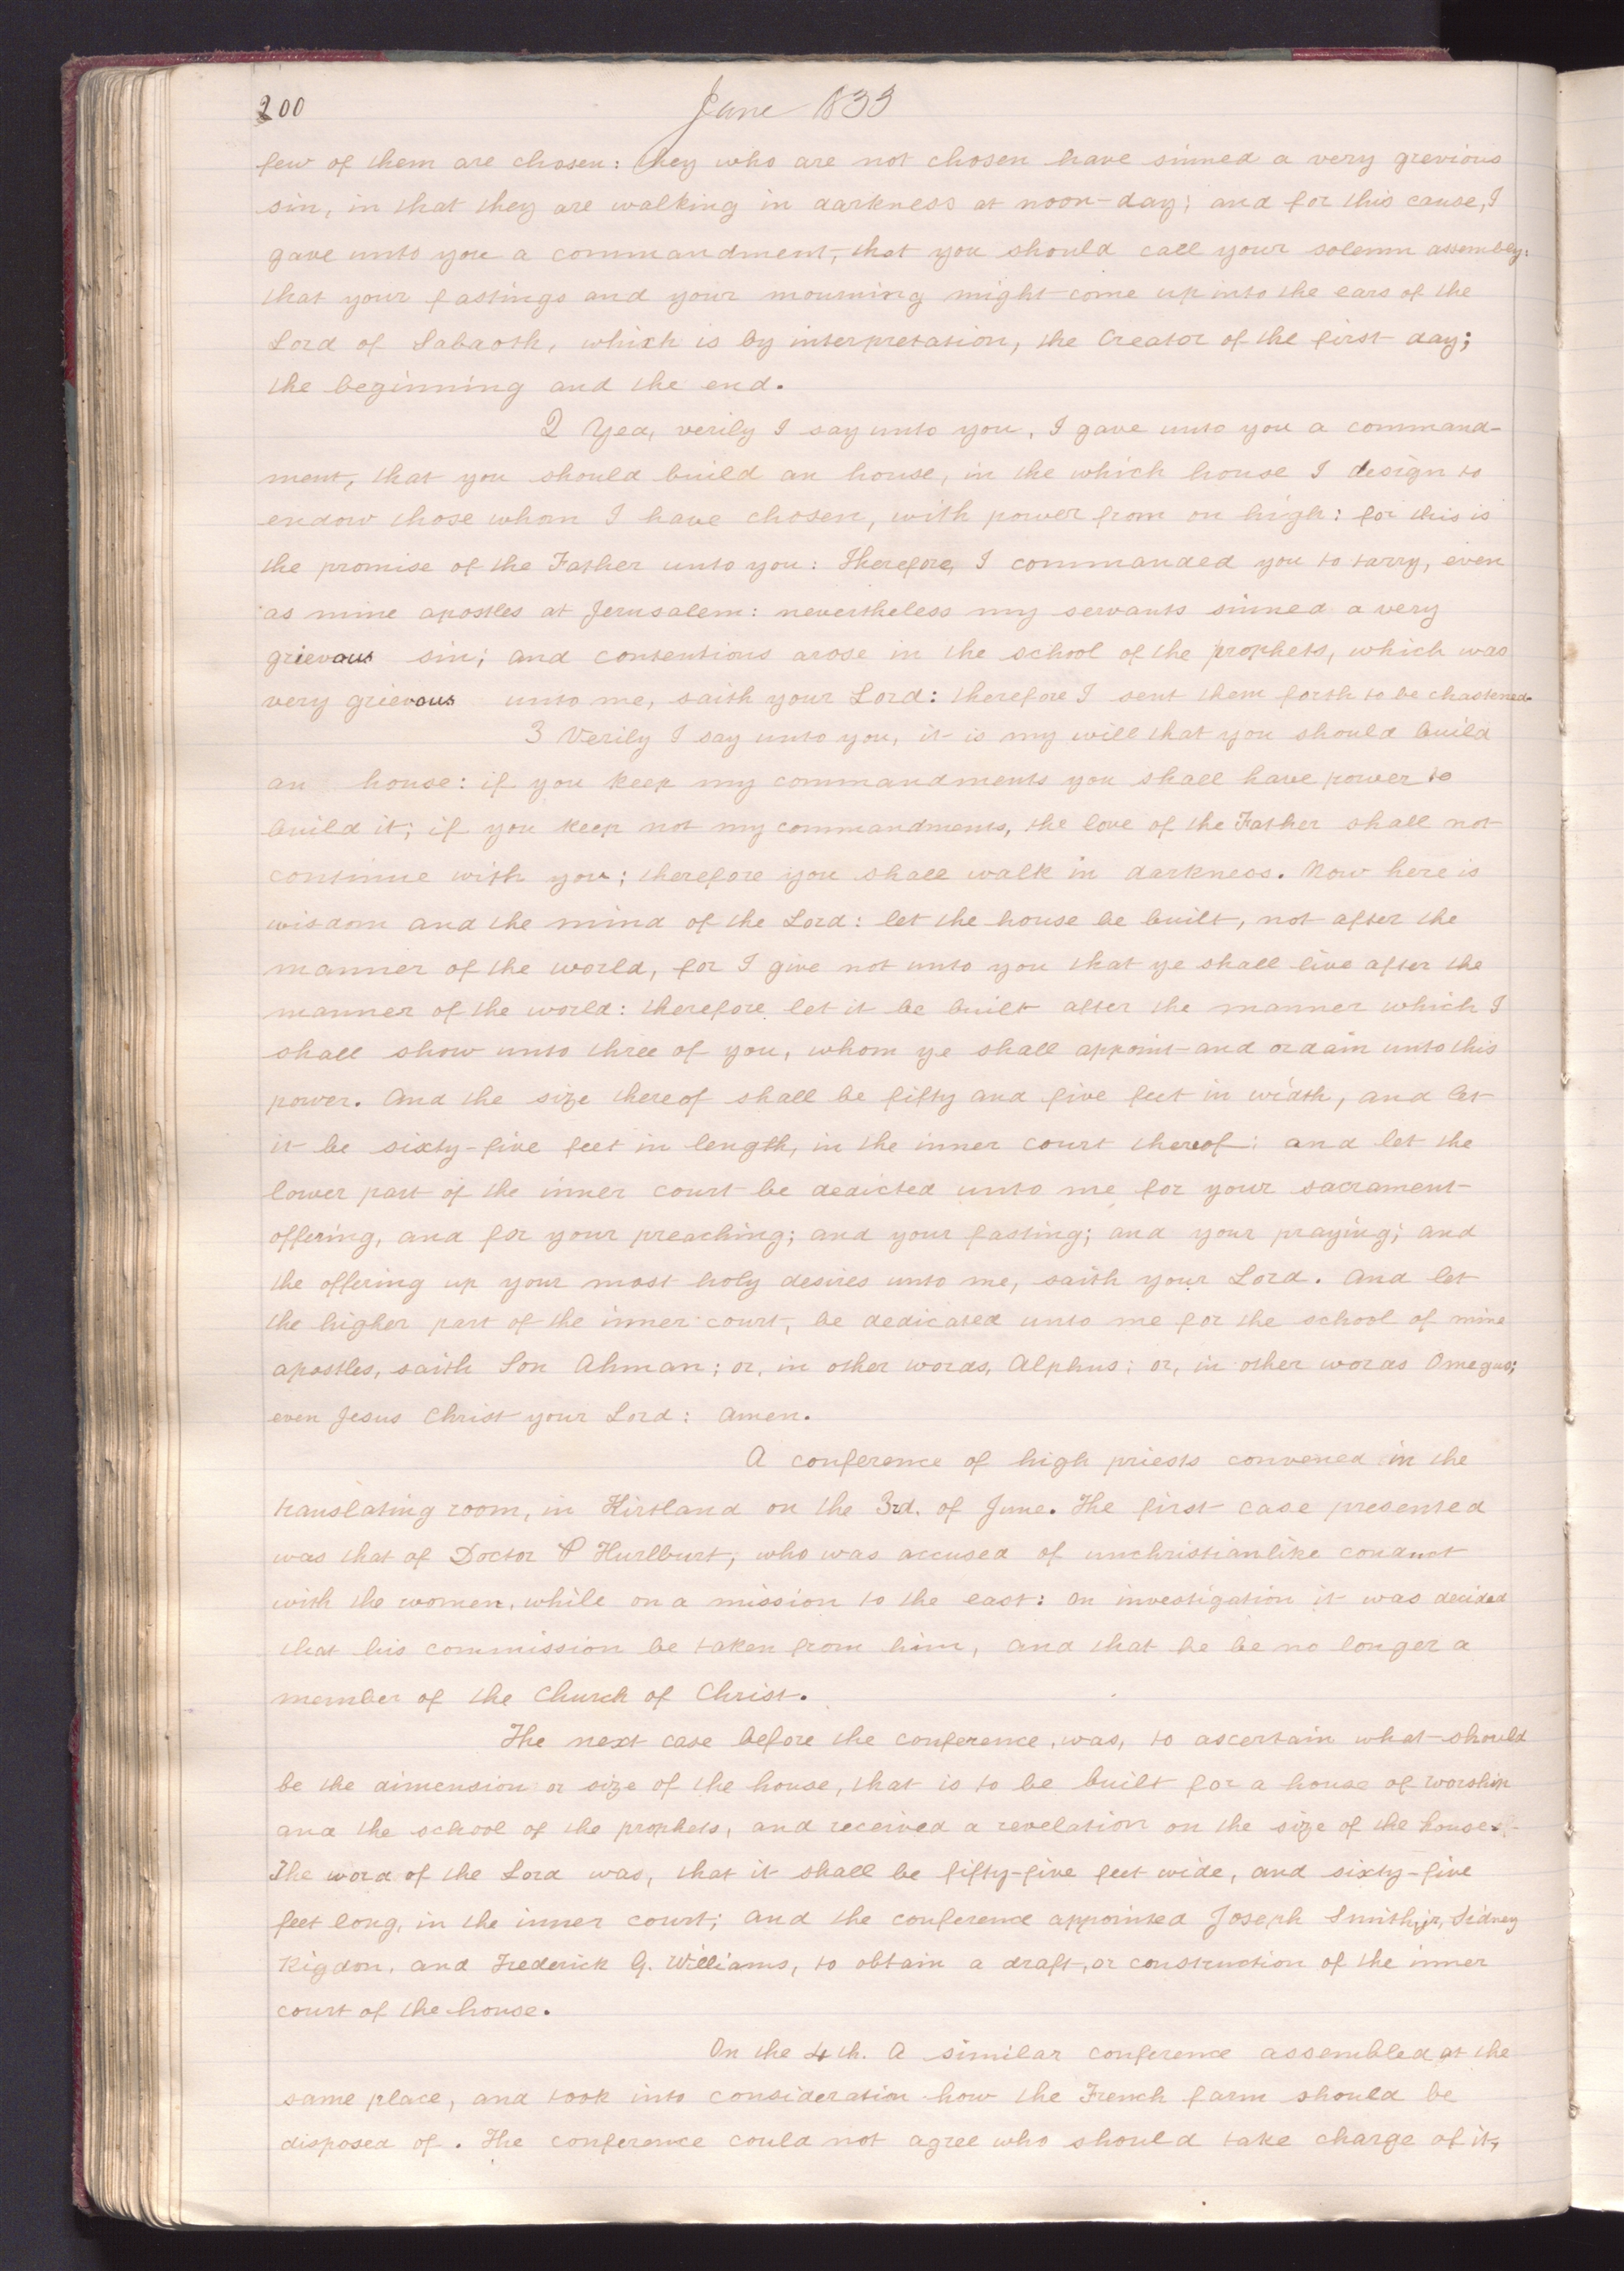 200
June 1833
few of them are chosen: they who are not chosen have sinned a very grevious
sin, in that they are walking in darkness at noon-day; and for this cause, I
gave unto you a commandment, that you should call your solemn assembly:
that your fastings and your mourning might come up into the ears of the
Lord of Sabaoth, which is by interpretation, the Creator of the first day;
the beginning and the end.
2 Yea, verily I say unto you, I gave unto you a command-
ment, that you should build an house, in the which house I design to
endow those whom I have chosen, with power from on high: for this is
the promise of the Father unto you: Therefore, I commanded you to tarry, even
as mine apostles at Jerusalem: nevertheless my servants sinned a very
grievous sin; and contentions arose in the school of the prophets, which was
very grievous unto me, saith your Lord: therefore I sent them forth to be chastened.
3 Verily I say unto you, it is my will that you should build
an house: if you keep my commandments you shall have power to
build it; if you keep not my commandments, the love of the Father shall not
continue with you; therefore you shall walk in darkness. Now here is
wisdom and the mind of the Lord: let the house be built, not after the
manner of the world, for I give not unto you that ye shall live after the
manner of the world: therefore let it be built after the manner which I
shall show unto three of you, whom ye shall appoint and ordain unto this
power. And the size thereof shall be fifty and five feet in width, and let
it be sixty-five feet in length, in the inner court thereof: and let the
lower part of the inner court be dedicted unto me for your sacrament
offering, and for your preaching; and your fasting; and your praying; and
the offering up your most holy desires unto me, saith your Lord. And let
the higher part of the inner court, be dedicated unto me for the school of mine
apostles, saith Son Ahman; or, in other words, Alphus; or, in other words Omegus;
even Jesus Christ your Lord: Amen.
A conference of high priests convened in the
translating room, in Kirtland on the 3rd. of June. The first case presented
was that of Doctor P Hurlburt, who was accused of unchristianlike conduct
with the women, while on a mission to the east: On investigation it was decided
that his commission be taken from him, and that he be no longer a
member of the Church of Christ.
The next case before the conference, was, to ascertain what should
be the dimension or size of the house, that is to be built for a house of worship
and the school of the prophets, and received a revelation on the size of the house.
The word of the Lord was, that it shall be fifty-five feet wide, and sixty-five
feet long, in the inner court; and the conference appointed Joseph Smith, jr, Sidney
Rigdon, and Frederick G. Williams, to obtain a draft, or construction of the inner
court of the house.
On the 4th. A similar conference assembled at the
same place, and took into consideration how the French farm should be
disposed of. The conference could not agree who should take charge of it,